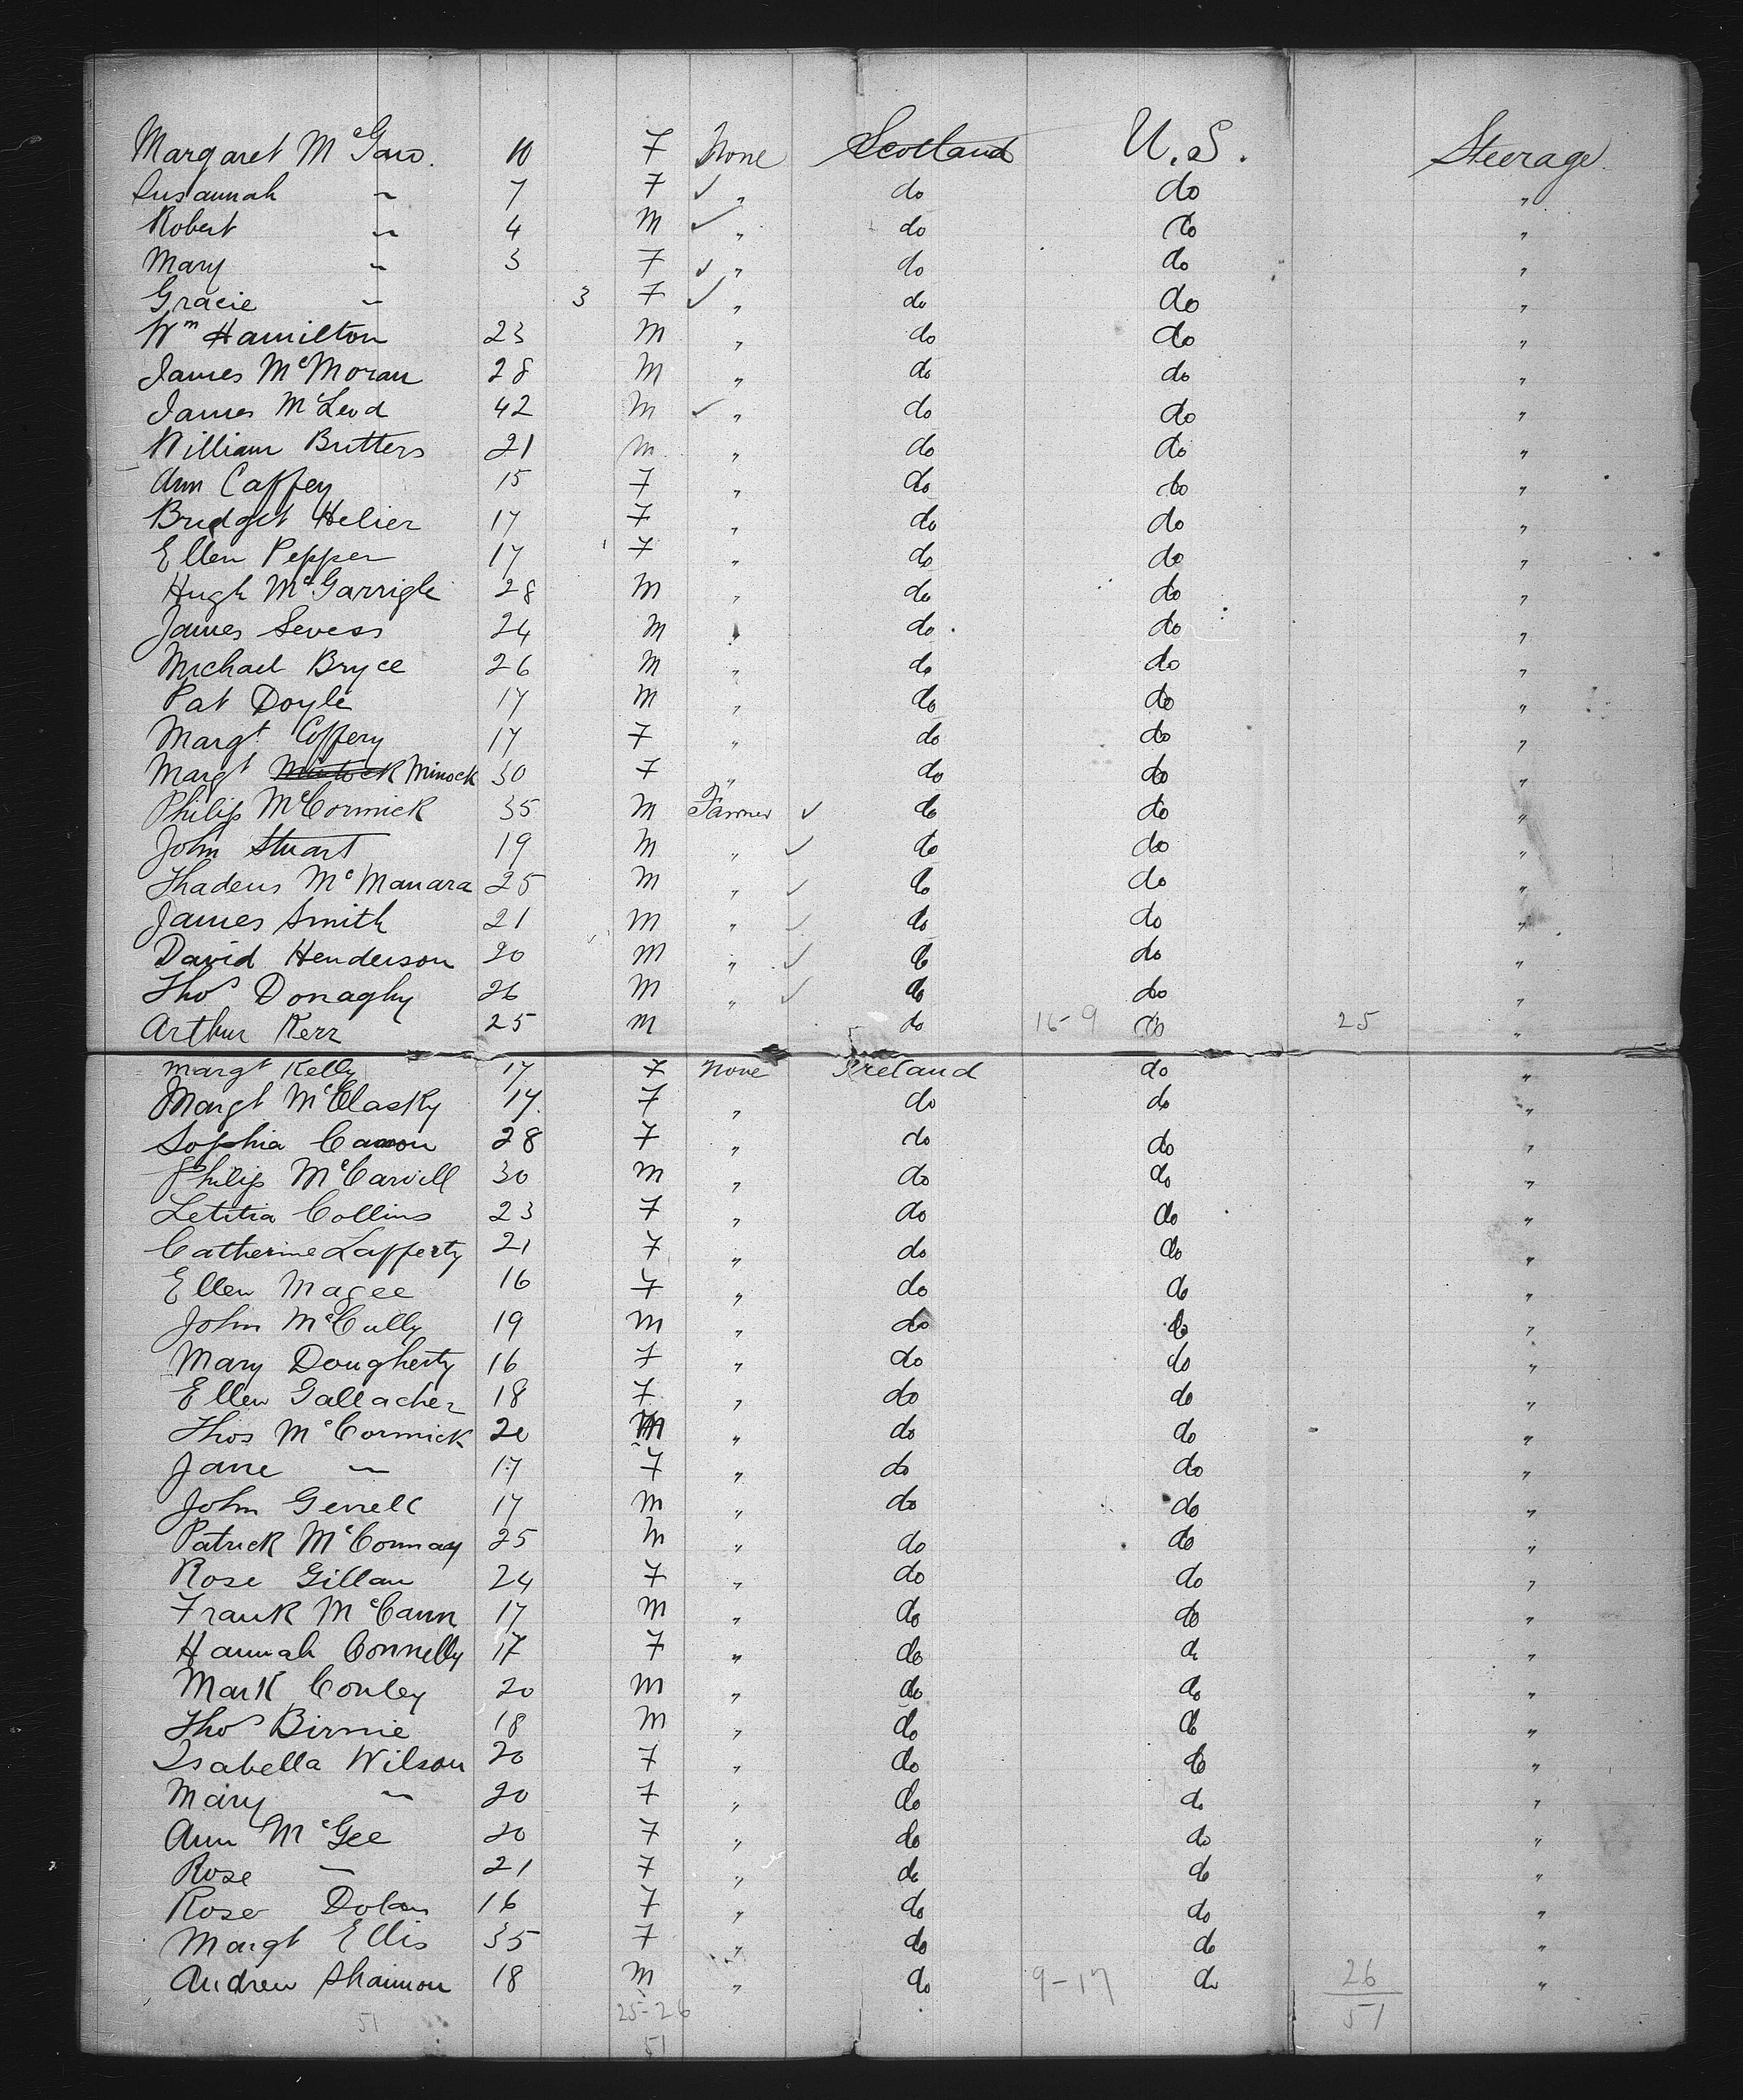 Margaret McGaw. 10 F None Scotland U.S. Steerage
Susannah " 7 F ✓ " do do "
Robert " 4 M ✓ " do do "
Mary " 3 F ✓ " do do "
Gracie " 3 F ✓ " do do "
Wm Hamilton 23 M " do do "
James McMoran 28 M " do do "
James McLeod 42 M ✓ " do do "
William Butters 21 M " do do "
Ann Caffey 15 F " do do "
Bridget Helier 17 F " do do "
Ellen Pepper 17 F " do do "
Hugh McGarrigle 28 M " do do "
James 24 M " do do "
Michael Bryce 26 M " do do "
Pat Doyle 17 M " do do "
Margt Coffery 17 F " do do "
Margt Minock 30 F " do do "
Philip McCormick 35 M Farmer ✓ do do "
John Stuart 19 M " ✓ do do "
Thadeus McManara 25 M " ✓ do do "
James Smith 21 M " ✓ do do "
David Henderson 20 M " ✓ do do "
Thos Donaghy 26 M " ✓ do do "
Arthur Kerr 25 M do 16-9 do 25 "
Margt Kelly 17 F None Ireland do "
Margt McClasky 17. F " do do "
Sophia 28 F " do do "
Philip McCarvill 30 M " do do "
Letitia Collins 23 F " do do "
Catherine Lafferty 21 F " do do "
Ellen Magee 16 F " do do "
John McCully 19 M " do do "
Mary Dougherty 16 F " do do "
Ellen Gallacher 18 F " do do "
Thos McCormick 20 M " do do "
Jane " 17 F " do do "
John 17 M " do do "
Patrick McConnay 25 M " do do "
Rose Gillan 24 F " do do "
Frank McCann 17 M " do do "
Hannah Connelly 17 F " do do "
Mark Conley 20 M " do do "
Thos Birnie 18 M " do do "
Isabella Wilson 20 F " do do "
Mary " 20 F " do do "
Ann McGee 20 F " do do "
Rose " 21 F " do do "
Rose Dolan 16 F " do do "
Margt Ellis 35 F " do do "
Andrew Shannon 18 M " do 9-17 do 26 "
51 25-26 51
51